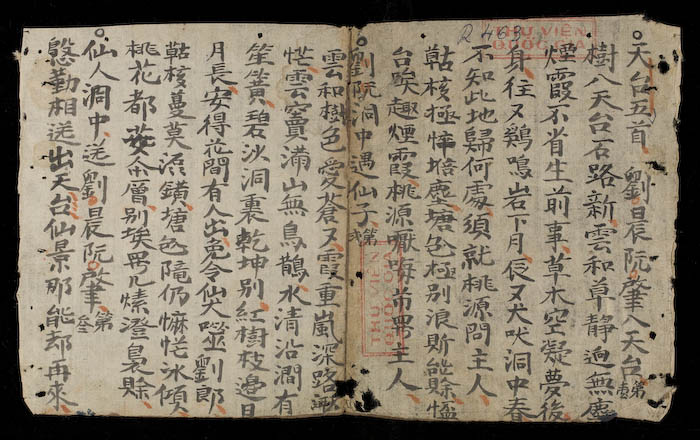 天台五首 劉晨阮肇入天台 第壹
樹入天台石路新雲和草靜迥無塵
煙霞不省生前事草木空疑夢後
身往又鷄鳴岩下月辰又犬吠洞中春
不知此地歸何處須就桃源問主人
核極塘色極別浪
台趣煙霞桃源主人
劉阮洞中遇仙子 第弍
雲和樹色愛蒼又霞重嵐深路渺
茫雲竇滿山無鳥鵲水清沿澗有
笙簧碧沙洞裏乾坤別紅樹枝邊日
月長安得花間有人出免令仙犬吠劉郎
核蔓莫塘仍氷傾
桃花都別埃澄裊賒
仙人洞中送劉晨阮肇 第叁
慇懃相送出天台仙景那能却再來
THU VIEN
QUOC GIA
THU VIEN
QUOC GIA